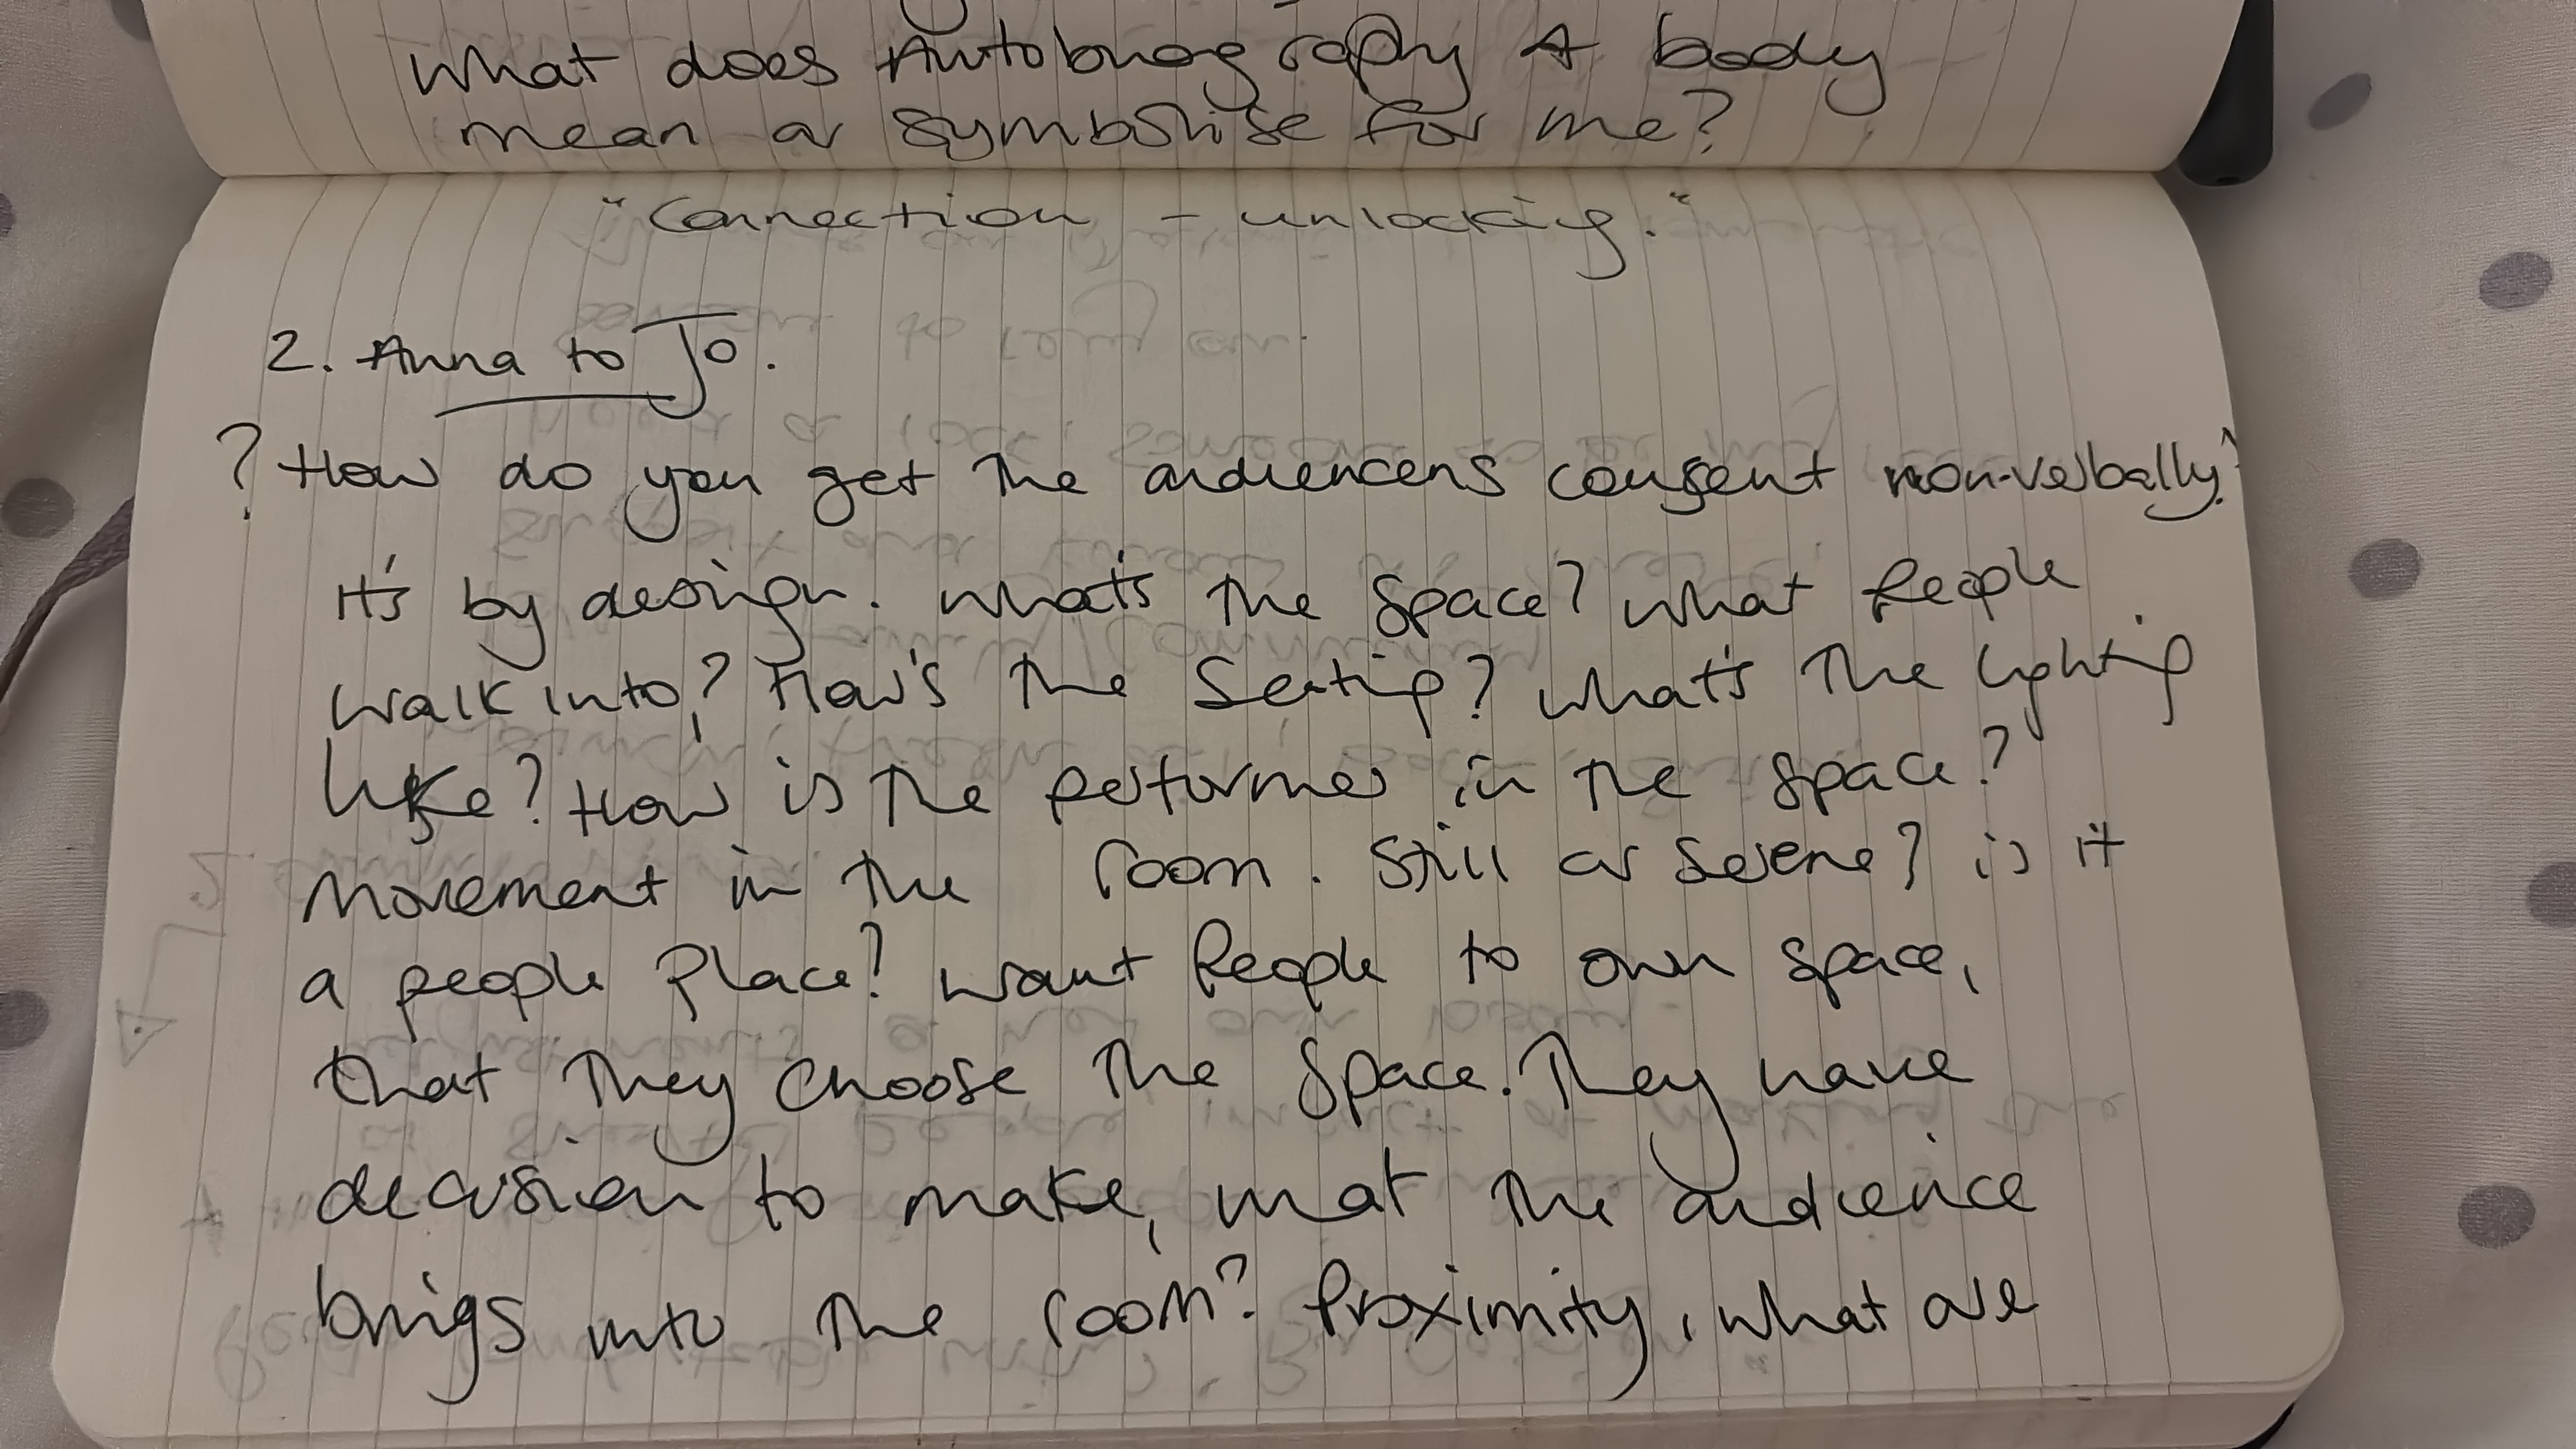 What does Autobiography & body
mean or symbolise for me?
"Connection - unlocking."
2. Anna to Jo.
? How do you get the audiencens consent non-verbally?
It's by design. What's the space? What People
walk into? How's the Seating? What's the lighting
like? How is the performer in the space?
Movement in the room. Still or Serene? is it
a people place? Want People to own space,
that they choose the space. They have
decision to make, what the audience
brings into the room? Proximity, what are